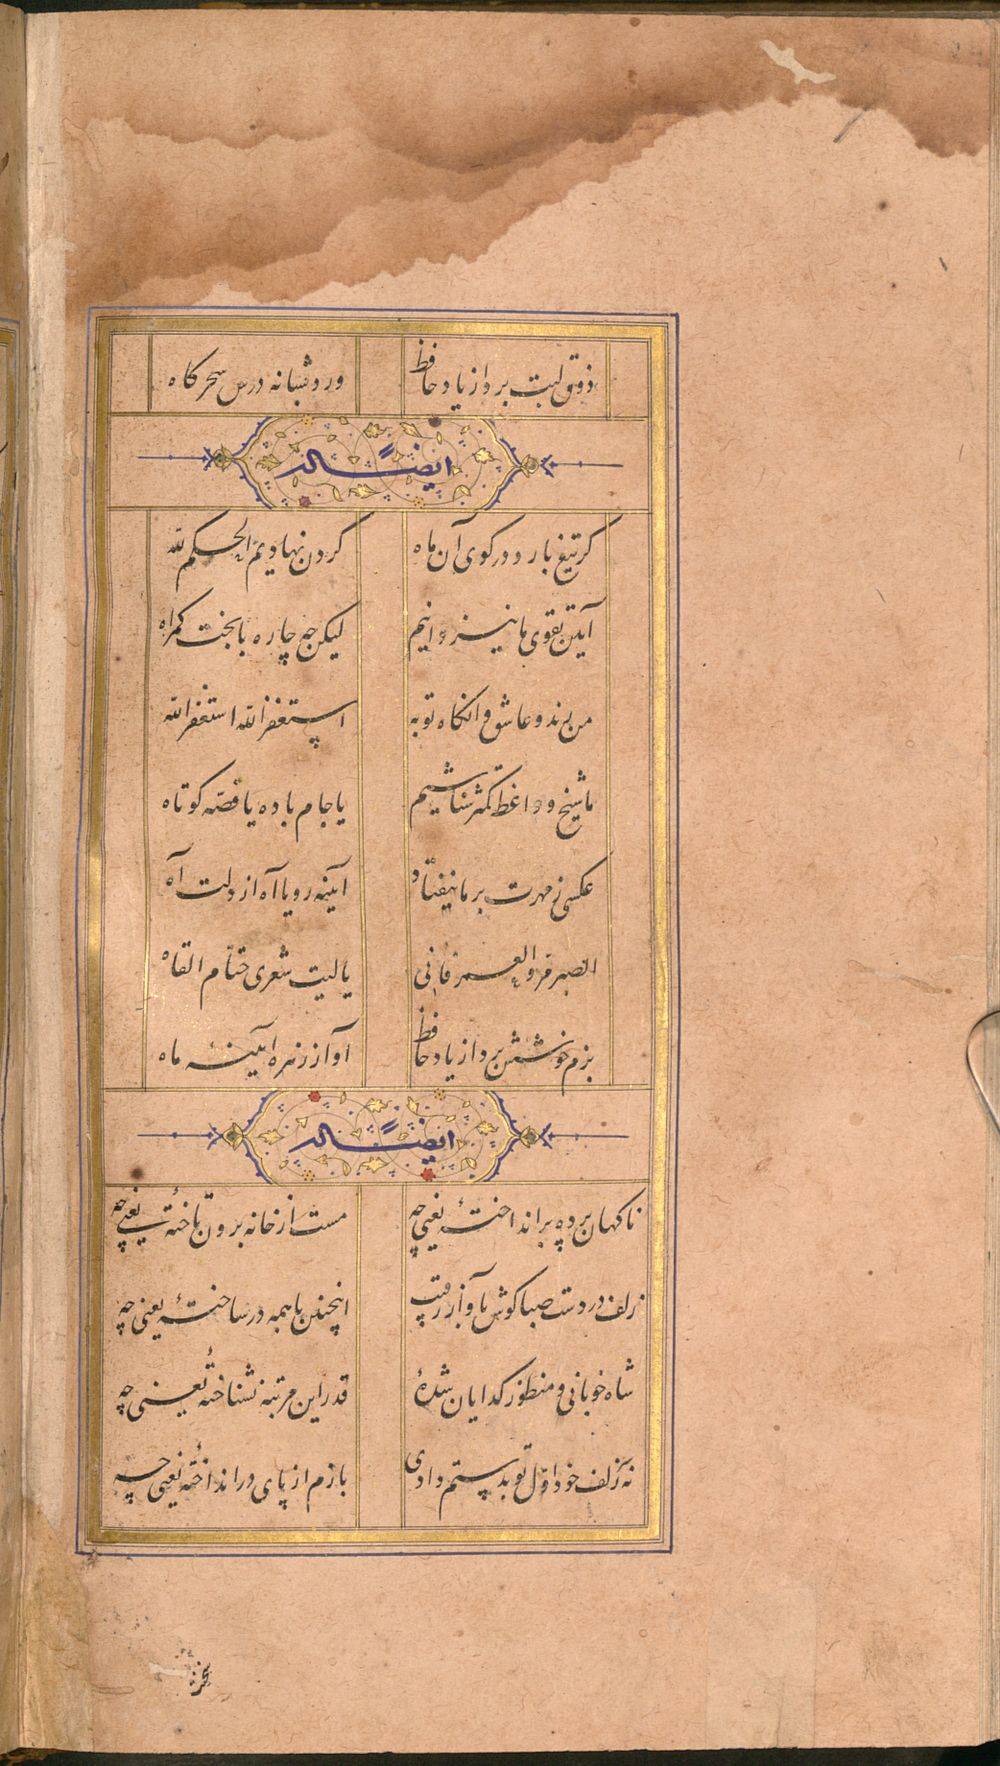 ذوق لبت برد از یاد حافظ
ورد شبانه درس سحرکاه
ایضاً له
کر تیغ بارد در کوی آن ماه
کردن نهادیم الحکم لله
آیین تقوی ما نیز دانیم
لیکن چه چاره با بخت کمراه
من رند و عاشق و انکاه توبه
استغفرالله استغفرالله
ما شیخ و واعظ کمتر شناسیم
یا جام باده یا قصه کوتاه
عکسی ز مهرت بر ما نیفتاد
آیینه رویا آه از دلت آه
الصبر مر و العمر فانی
یا لیت شعری حتام القاه
بزم خوشش برد از یاد حافظ
آواز زهره آیینه ماه
ایضاً له
ناکهان پرده برانداختهٔ یعنی چه
مست از خانه برون تاختهٔ یعنی چه
زلف در دست صبا کوش بآواز رقیب
اینچنین با همه در ساختهٔ یعنی چه
شاه خوبانی و منظور کدایان شدهٔ
قدر این مرتبه نشناختهٔ یعنی چه
نه ز زلف خود اول تو بدستم دادی
بازم از پای در انداختهٔ یعنی چه